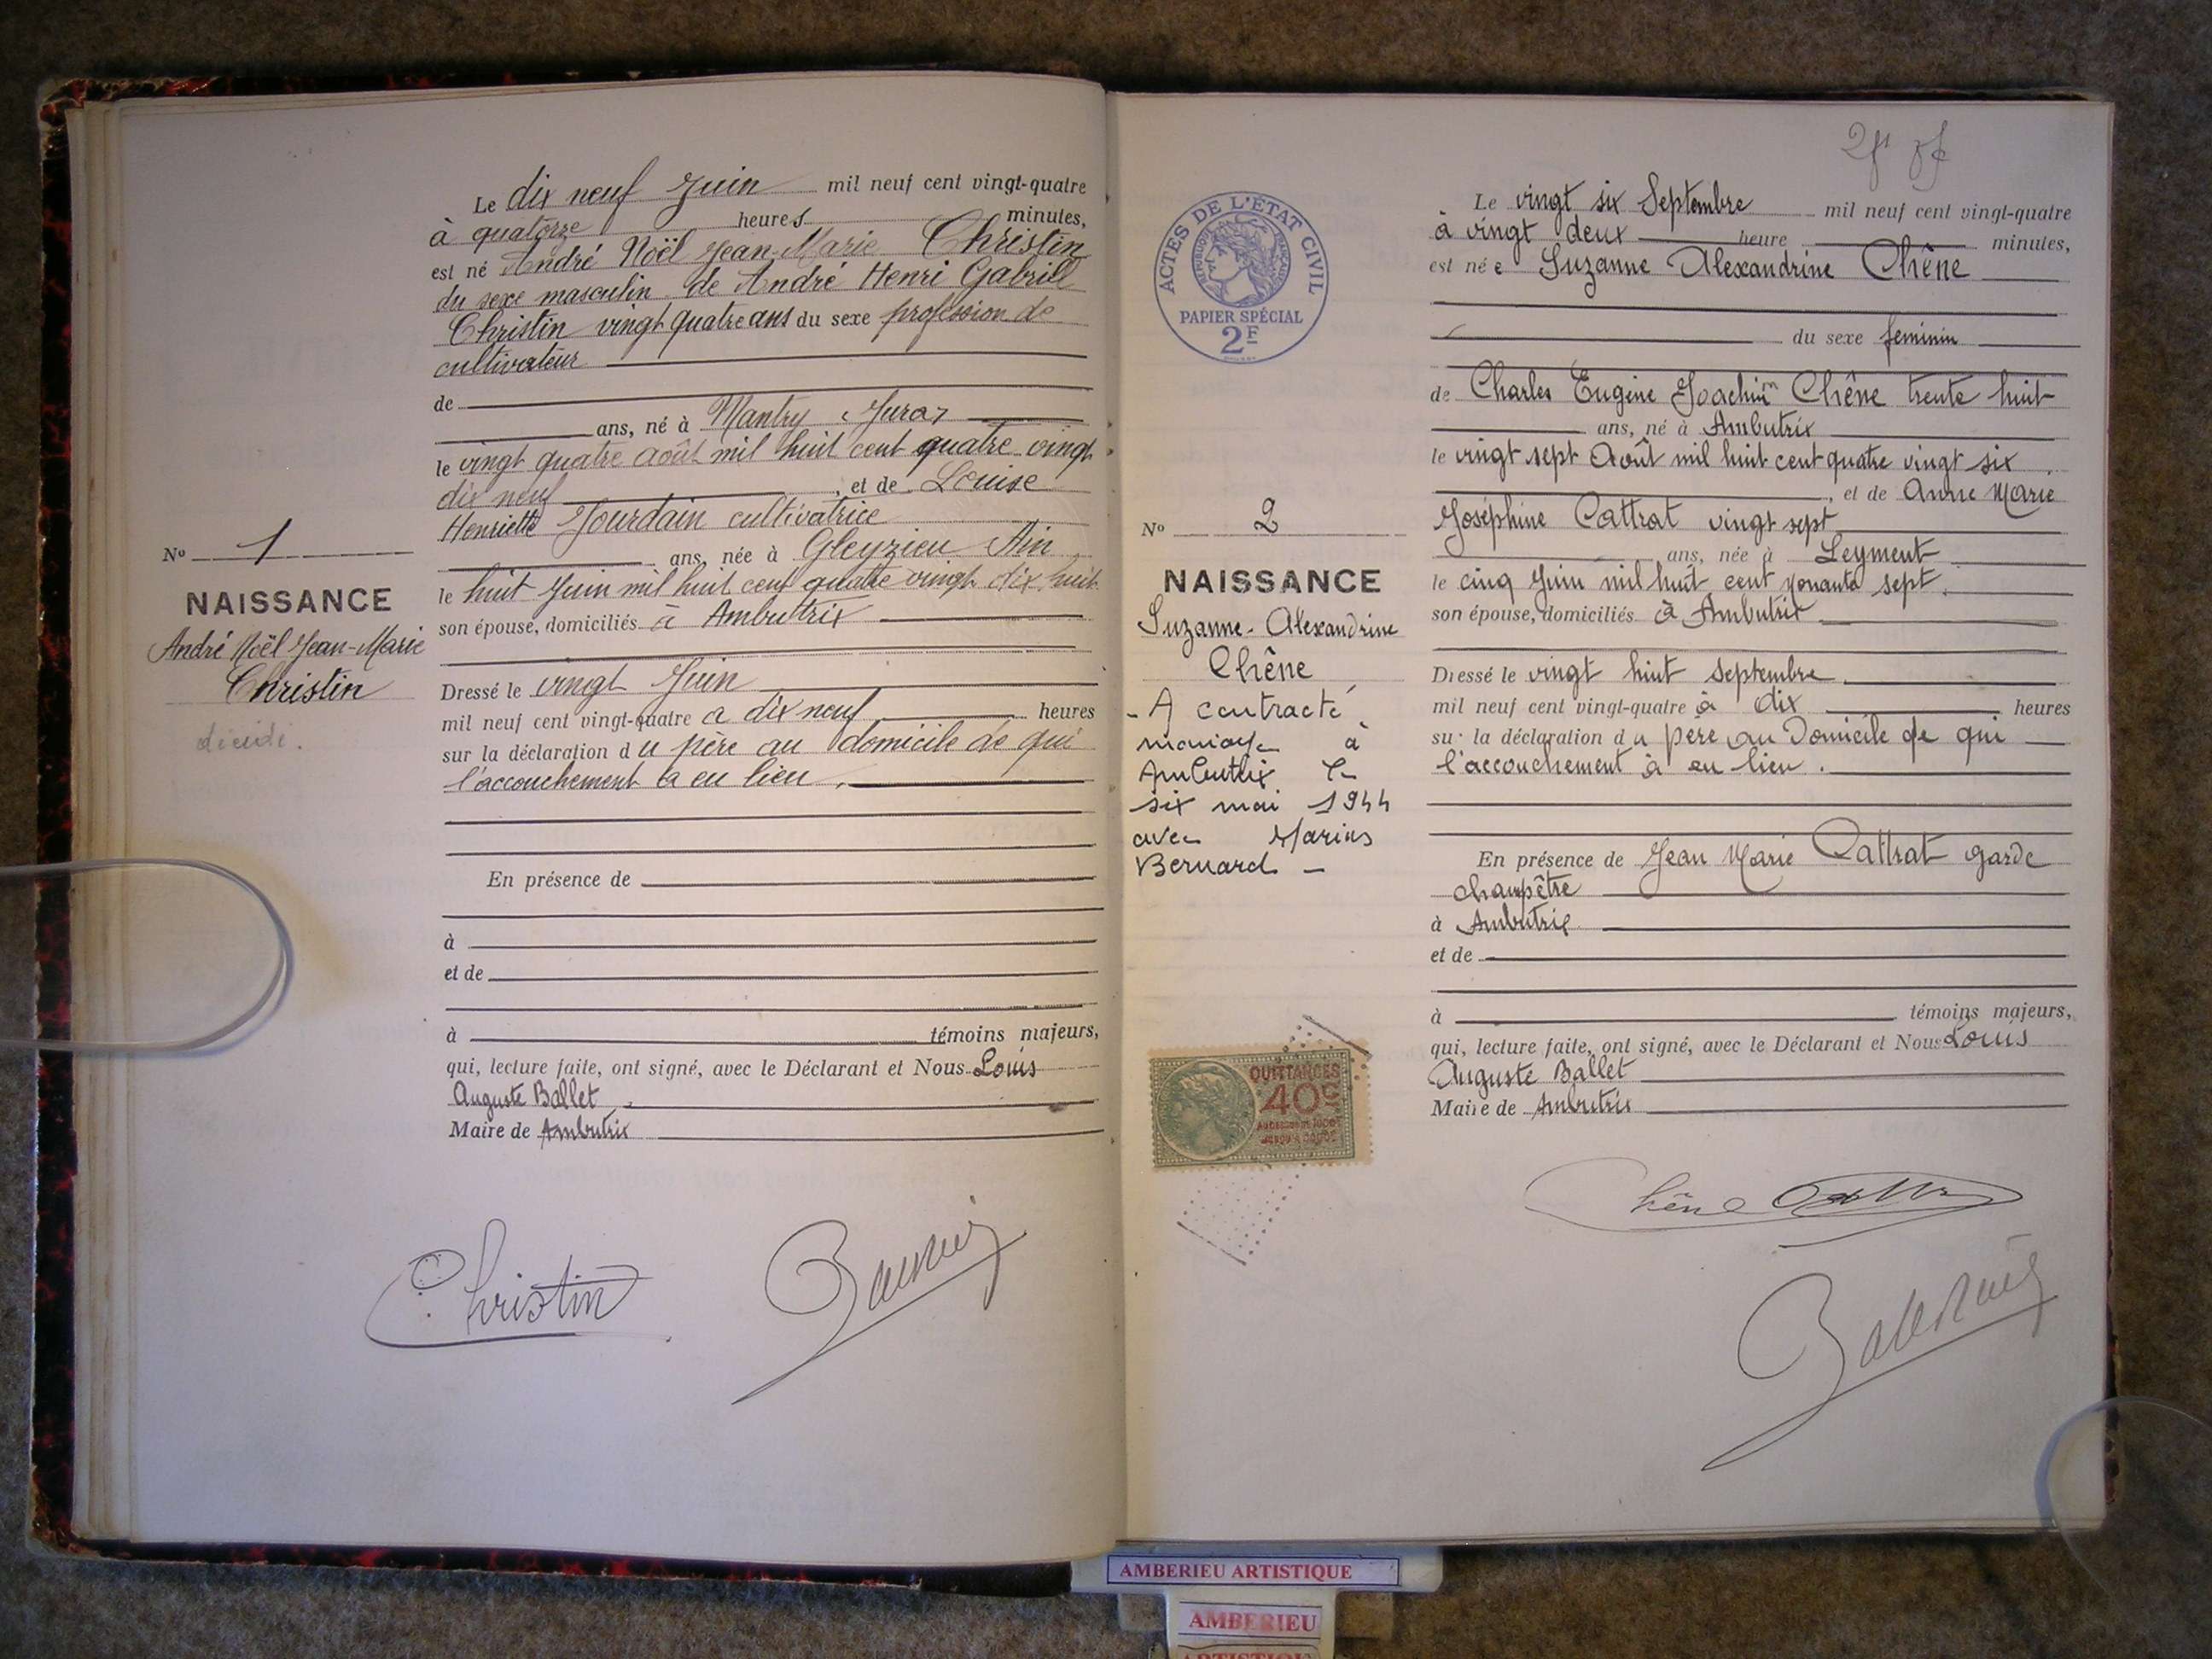 Le dix neuf Juin mil neuf cent vingt-quatre
à quatorze heures minutes,
est né André Noël Jean-Marie Christin
du sexe masculin de André Henri Gabriel
Christin vingt quatre ans du sexe profession de
cultivateur
de
ans, né à Mantry Jura
le vingt quatre août mil huit cent quatre vingt
dix neuf, et de Louise
Henriette Jourdain cultivatrice
ans, née à Gleyzieu Ain
le huit Juin mil huit cent quatre vingt dix huit
son épouse, domiciliés à Ambutrix
Dressé le vingt Juin
mil neuf cent vingt-quatre a dix neuf heures
sur la déclaration du père au domicile de qui
l'accouchement a eu lieu.
En présence de
à
et de
à témoins majeurs,
qui, lecture faite, ont signé, avec le Déclarant et Nous Louis
Auguste Ballet
Maire de Ambutrix
No 1
NAISSANCE
André Noël Jean-Marie
Christin
décédé.
Christin
ACTES DE L'ÉTAT CIVIL
PAPIER SPÉCIAL
2F
No 2
NAISSANCE
Suzanne-Alexandrine
Chêne
- A contracté
mariage à
Ambutrix le
six mai 1944
avec Marius
Bernard -
QUITTANCES
40c
Le vingt six Septembre mil neuf cent vingt-quatre
à vingt deux heure minutes,
est née Suzanne Alexandrine Chêne
du sexe feminin
de Charles Eugène Joachim Chêne trente huit
ans, né à Ambutrix
le vingt sept Août mil huit cent quatre vingt six
, et de Anne Marie
Joséphine Cattrat vingt sept
ans, née à Leyment
le cinq Juin mil huit cent nonante sept.
son épouse, domiciliés à Ambutrix
Dressé le vingt huit Septembre
mil neuf cent vingt-quatre à dix heures
sur la déclaration du père au Domicile de qui
l'accouchement à eu lieu.
En présence de Jean Marie Cattrat garde
champêtre
à Ambutrix
et de
à témoins majeurs,
qui, lecture faite, ont signé, avec le Déclarant et Nous Louis
Auguste Ballet
Maire de Ambutrix
Chêne
AMBERIEU ARTISTIQUE
AMBERIEU
ARTISTIQUE